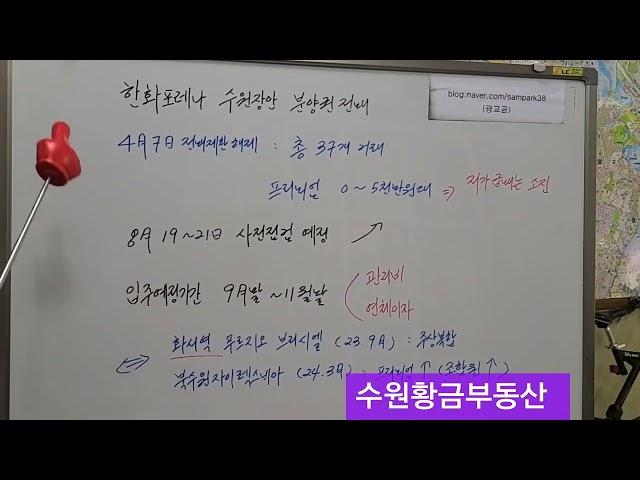 한화포레나 수원장안 분양권 전매
blog.naver.com/sampark38
(광교곰)
4月 7日 전매제한 해제 : 총 37개 거래
프리미엄 0 ~ 5천만원대 ⇒ 저가급매는 소진
8月 19 ~ 21日 사전점검 예정 ↗
입주예정기간 9月말 ~ 11월말
관리비
연체이자
⇔ 화서역 푸르지오 브리시엘 (23. 9月) : 주상복합
북수원자이렉스비아 (24. 3月) : 프리미엄 ↑ (조합원 ↑)
수원황금부동산